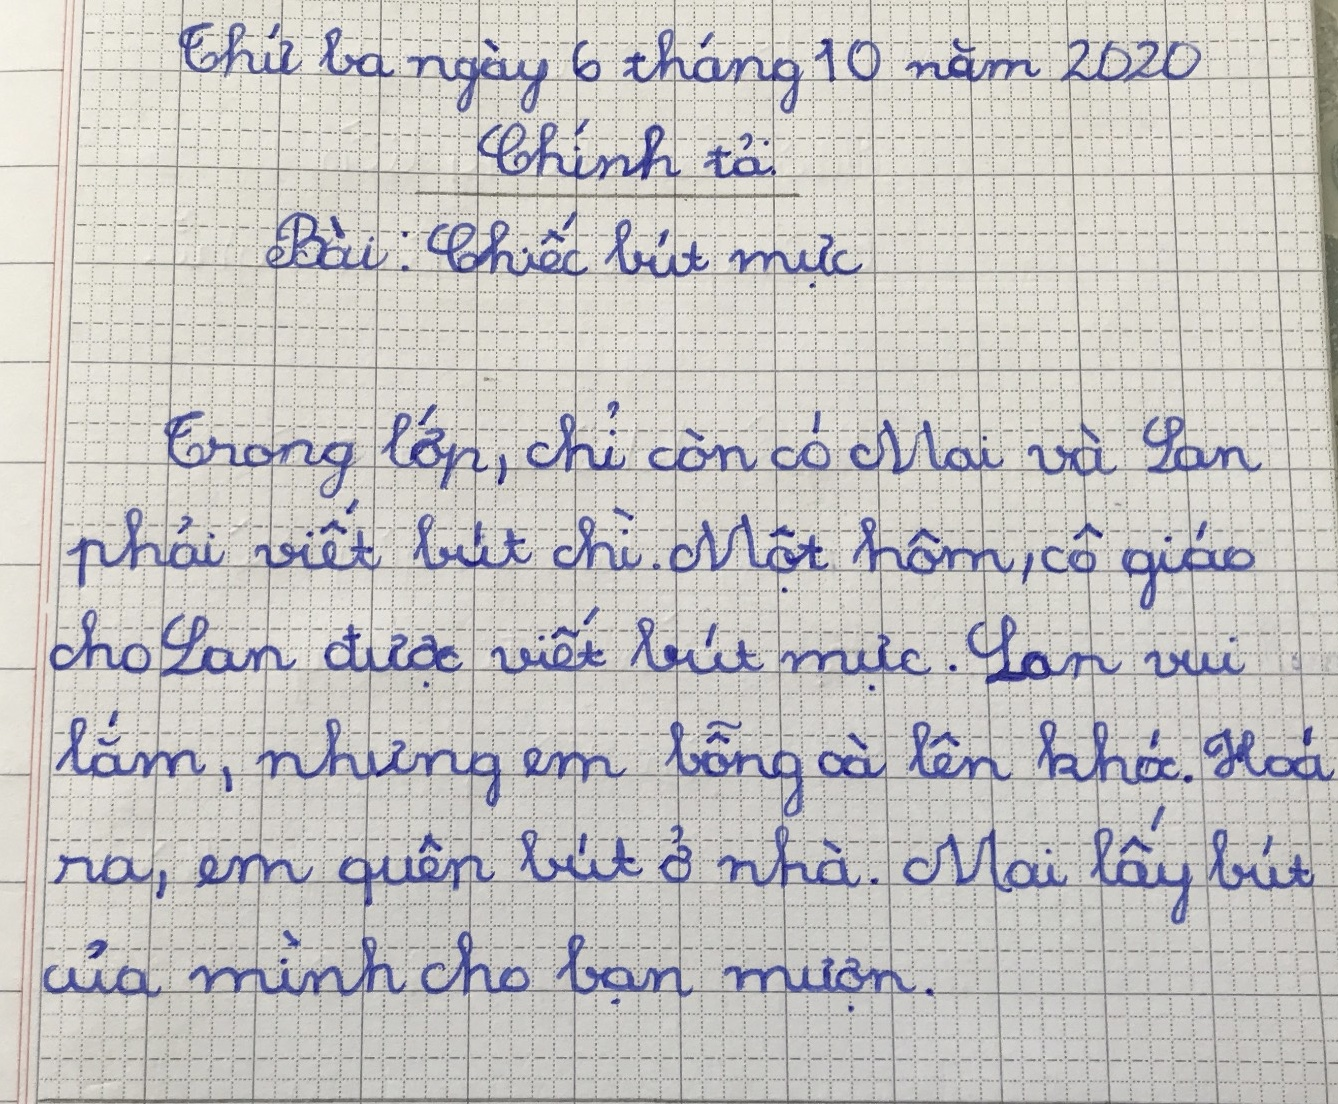 Thứ ba ngày 6 tháng 10 năm 2020
Chính tả
Bài: Chiếc bút mực
Trong lớp, chỉ còn có Mai và Lan
phải viết bút chì. Một hôm, cô giáo
cho Lan được viết bút mực. Lan vui
lắm, nhưng em bỗng oà lên khóc. Hoá
ra, em quên bút ở nhà. Mai lấy bút
của mình cho bạn mượn.